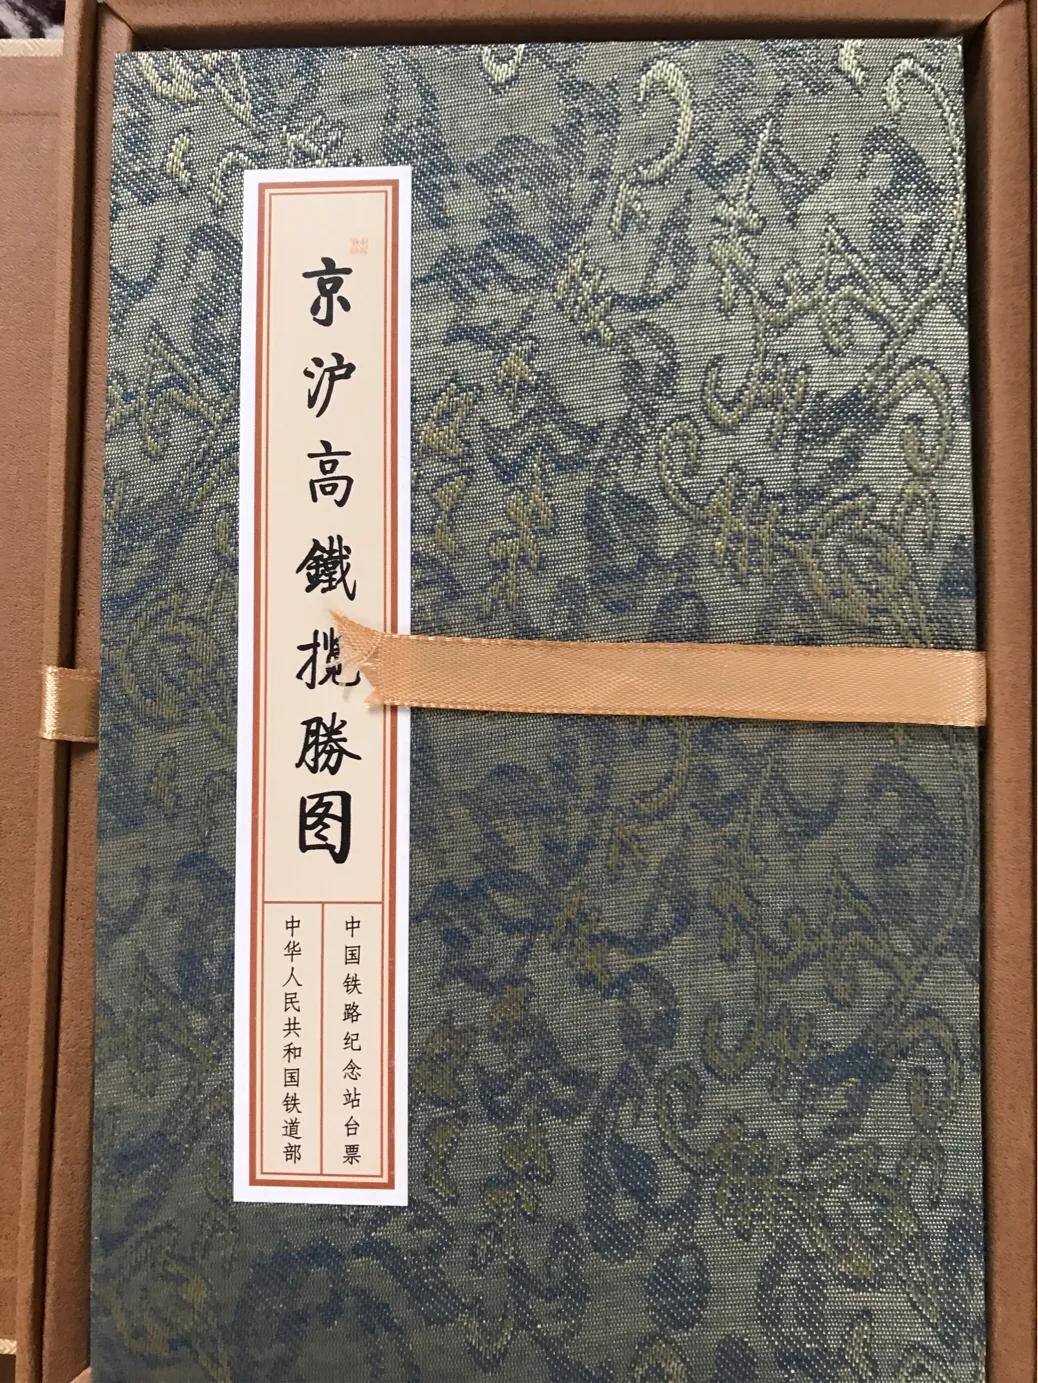 京沪高鐵揽勝图
中国铁路纪念站台票
中华人民共和国铁道部